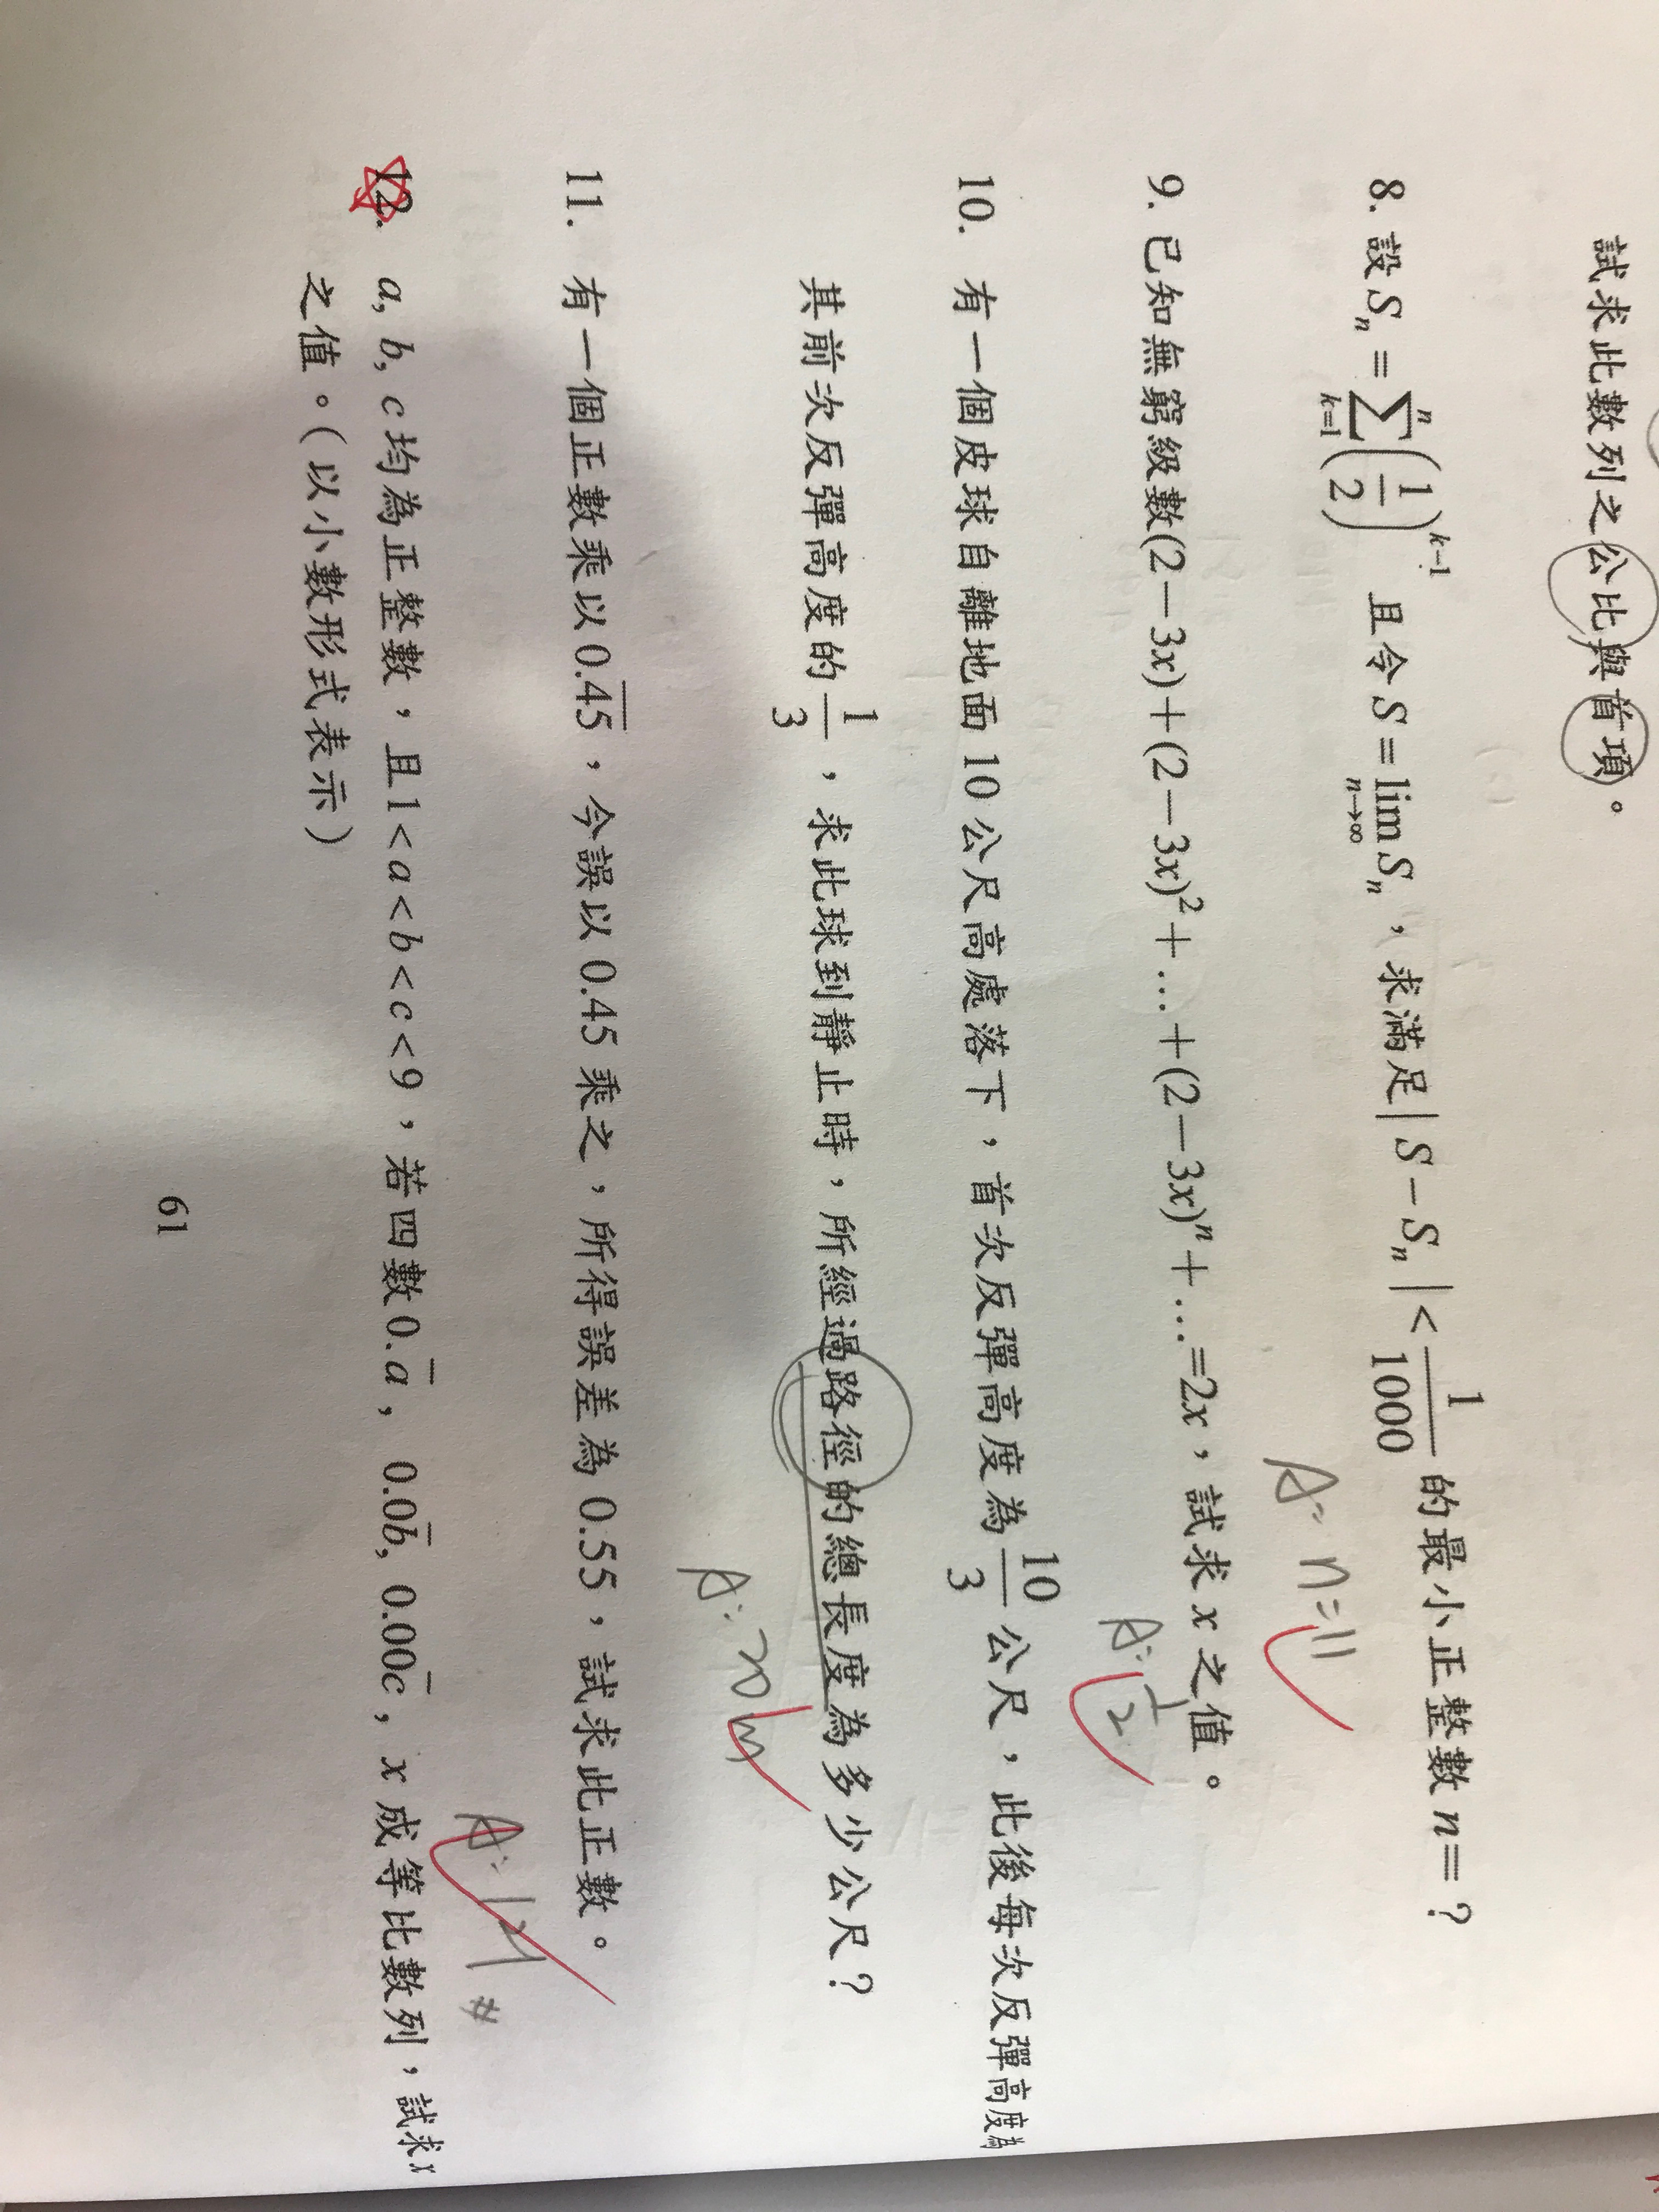 試求此數列之公比與首項。
8. 設 $S_n = \sum_{k=1}^{n} \left(\frac{1}{2}\right)^{k-1}$ 且令 $S = \lim_{n \to \infty} S_n$，求滿足 $| S - S_n | < \frac{1}{1000}$ 的最小正整數 $n =$ ?
A: n=11
9. 已知無窮級數 $(2-3x)+(2-3x)^2+\dots+(2-3x)^n+\dots=2x$，試求 $x$ 之值。
A: $\frac{1}{2}$
10. 有一個皮球自離地面 10 公尺高處落下，首次反彈高度為 $\frac{10}{3}$ 公尺，此後每次反彈高度為
其前次反彈高度的 $\frac{1}{3}$，求此球到靜止時，所經過路徑的總長度為多少公尺?
A: 20 m
11. 有一個正數乘以 $0.\overline{45}$，今誤以 0.45 乘之，所得誤差為 0.55，試求此正數。
A: 121 #
12. $a, b, c$ 均為正整數，且 $1 < a < b < c < 9$，若四數 $0.\overline{a}$，$0.0\overline{b}$, $0.00\overline{c}$，$x$ 成等比數列，試求 $x$
之值。(以小數形式表示)
61